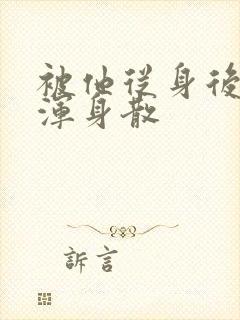 被他從身後
渾身散
訴言